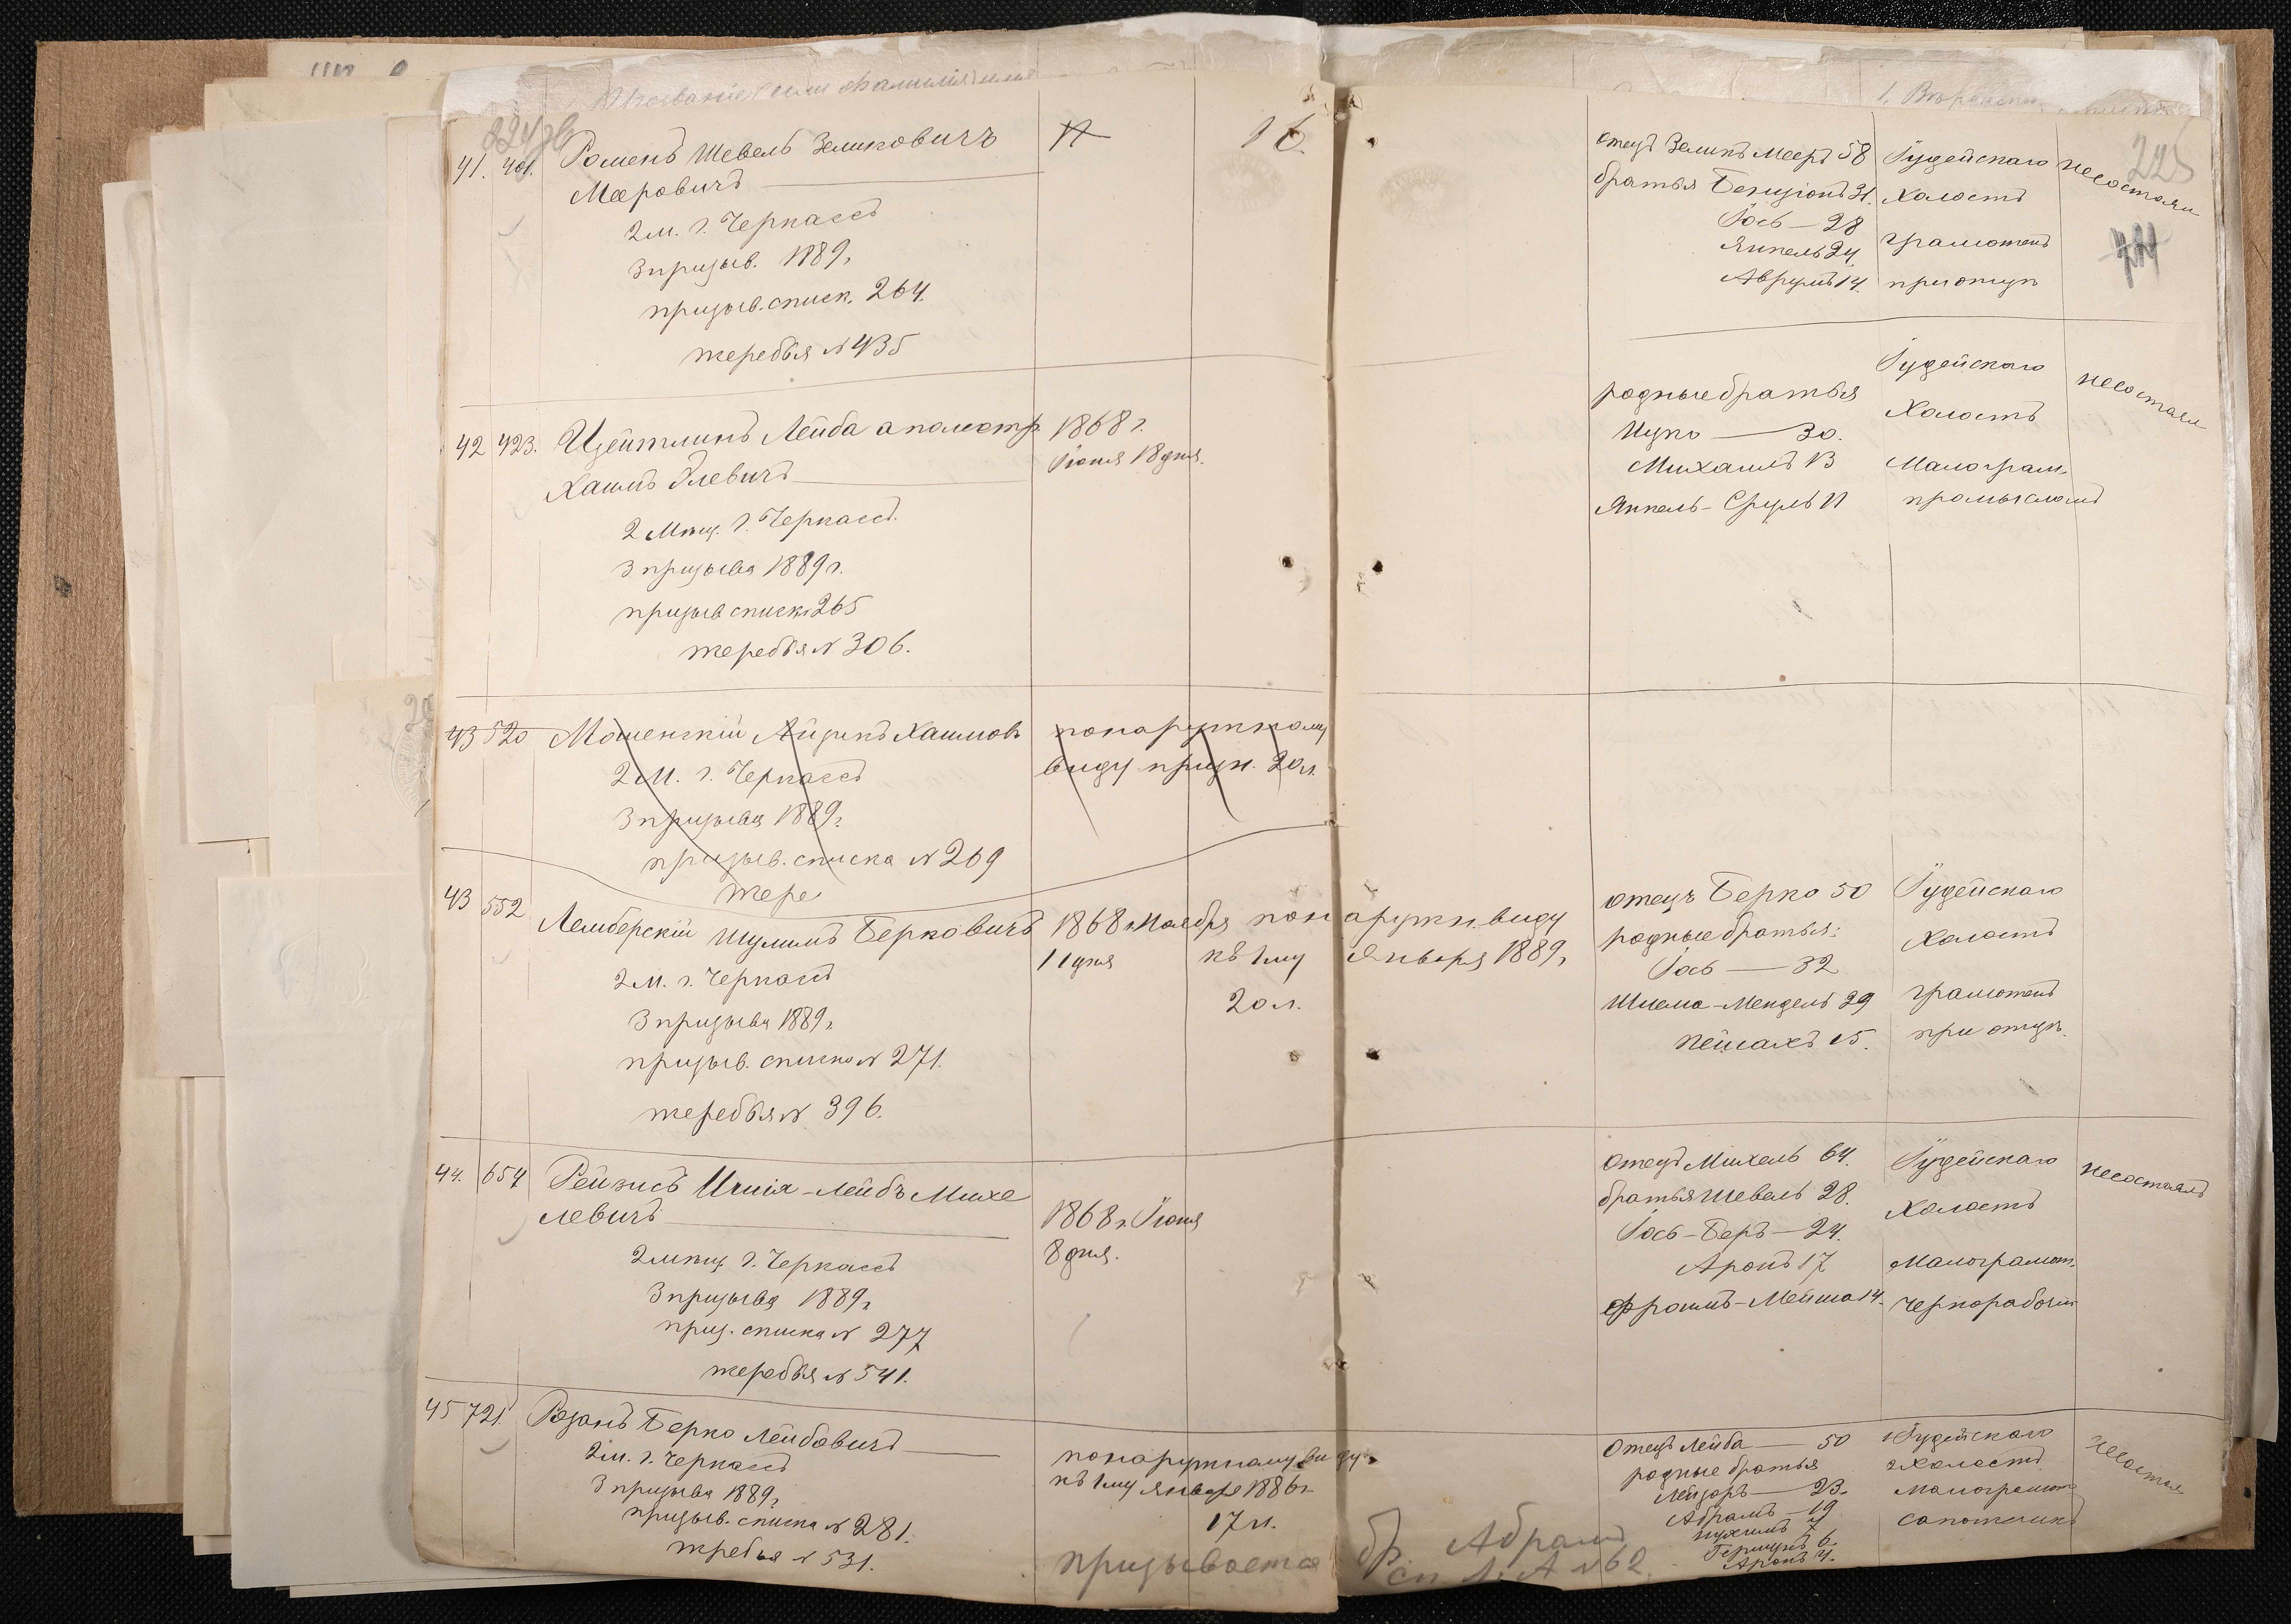 41. 401. Роменъ Шевель Зеликовичъ
Мееровичъ
2 м. г. Черкассъ
3 призыв. 1889 г
призыв. списк. 264.
жеребья № 435
16.
отецъ Зеликъ Мееръ 58
братья Бенціонъ 31.
Іось — 28
Янкель 24
Аврумъ 14.
Іудейскаго
холостъ
грамотенъ
при отцѣ
не состоял
225
42 423. Цейтлинъ Лейба а по метр.
Хаимъ Элевичъ
2 Мѣщ. г. Черкассъ.
3 призыва 1889 г.
призыв списк 265
жеребья № 306.
1868 г.
Іюня 18 дня.
родные братья
Ицко — 30.
Михаилъ 13
Янкель-Сруль 11
Іудейскаго
Холостъ
Малограм.
промысломъ
не состоял
43 520 Мошенскій Айзикъ Хаимов
2 М. г. Черкассъ
3 призыва 1889 г.
призыв. списка № 269
жере
по наружному
виду призн. 20 л.
43 552 Лемберскій Шулимъ Берковичъ
2 М. г. Черкассъ
3 призыва 1889 г
призыв. списка № 271.
жеребья № 396.
1868 г Ноября
11 дня
по наружн. виду
къ 1му Января 1889 г
20 л.
отецъ Берко 50
родные братья:
Іось — 32
Шлема-Мендель 29
Пейсахъ 15.
Іудейскаго
Холостъ
грамотенъ
при отцѣ.
44. 654 Рейзисъ Илия-Лейбъ Михе
левичъ
2 мѣщ г. Черкассъ
3 призыва 1889 г
приз. списка № 277
жеребья № 541.
1868 г. Іюня
8 дня.
отецъ Михель 64.
братья Шевель 28.
Іось-Беръ — 24.
Аронъ 17
Фроимъ-Мейша 14.
Іудейскаго
Холостъ
Малограмот.
чернорабочій
не состоялъ
45 721. Розанъ Берко Лейбовичъ
2 м. г. Черкассъ
3 призыва 1889 г
призыв. списка № 281.
жребья № 531.
по наружному виду
къ 1му Января 1886 г
17 л.
призывается бр. Абрамъ
сп Л. А №62.
Отецъ Лейба — 50
родные братья
Лейзоръ — 23.
Абрамъ — 19
Нухимъ 7
Гершунъ 6.
Аронъ 4.
Іудейскаго
холостъ
малограмотн
сапожникъ
не состоял